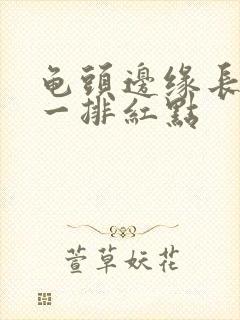 龟頭邊缘長
一排紅點
萱草妖花